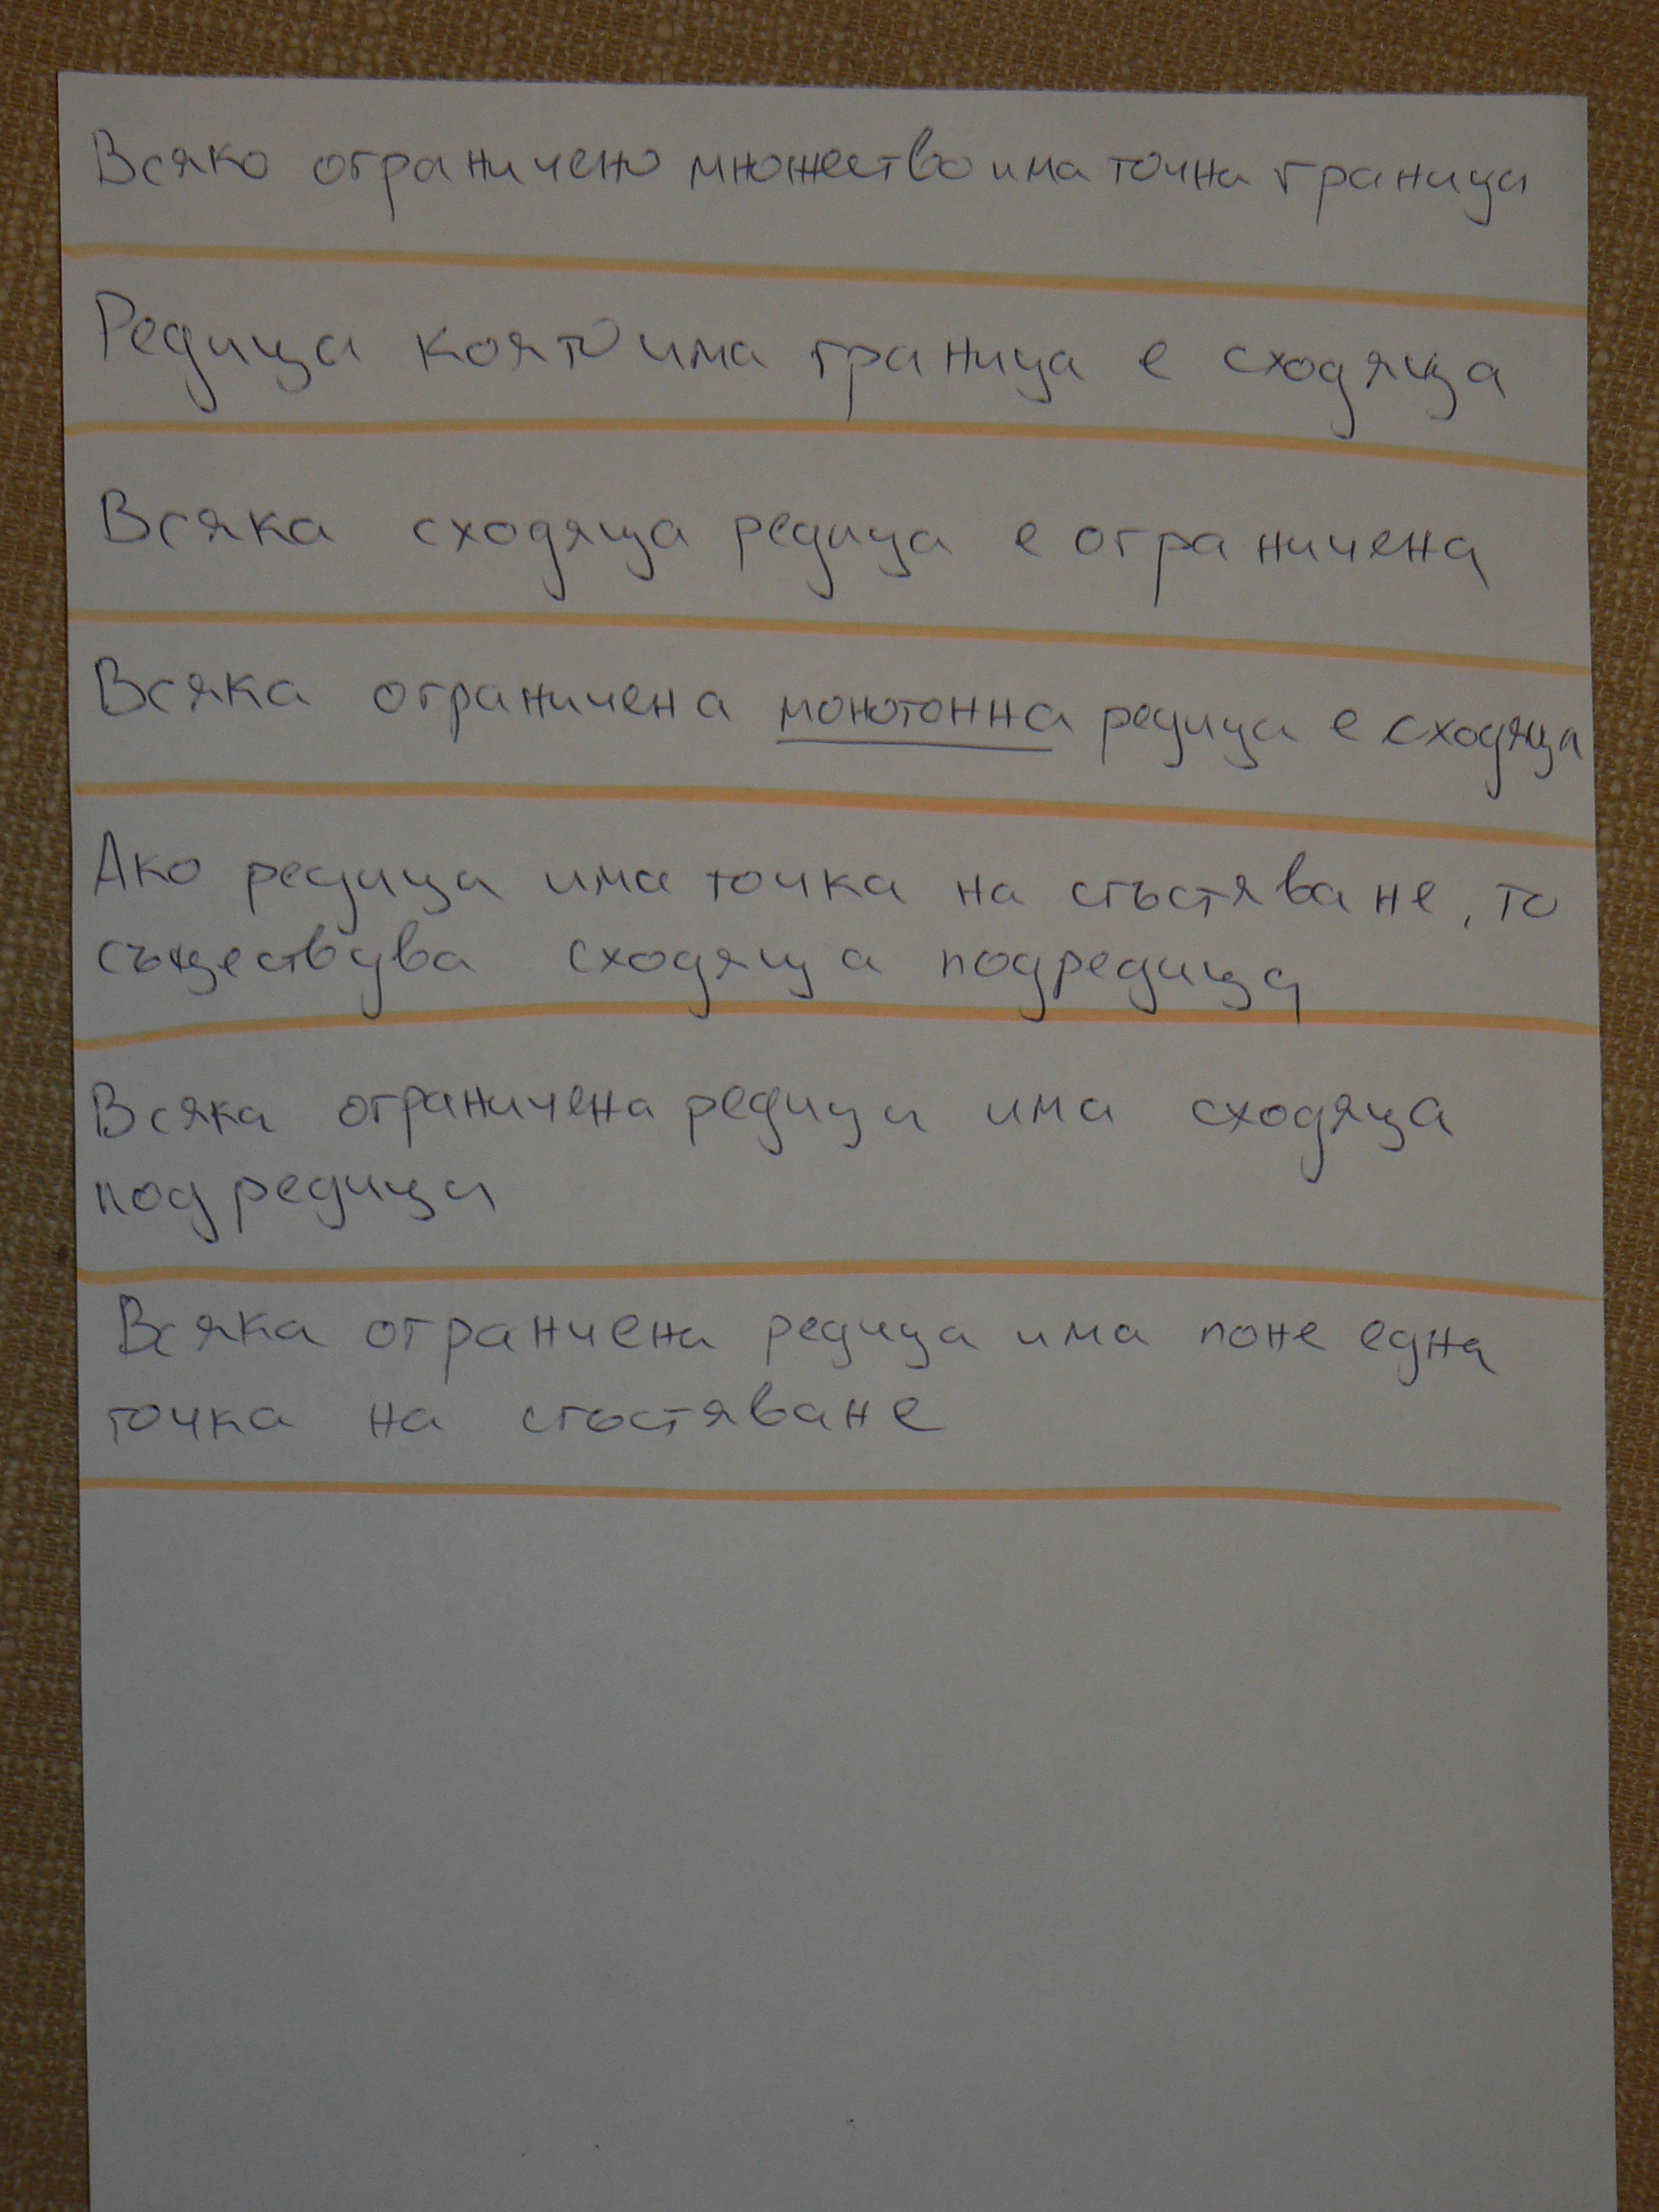 Всяко ограничено множество има точна граница
Редица която има граница е сходяща
Всяка сходяща редица е ограничена
Всяка ограничена монотонна редица е сходяща
Ако редица има точка на сгъстяване, то
съществува сходяща подредица
Всяка ограничена редица има сходяща
подредица
Всяка огранчена редица има поне една
точка на сгъстяване